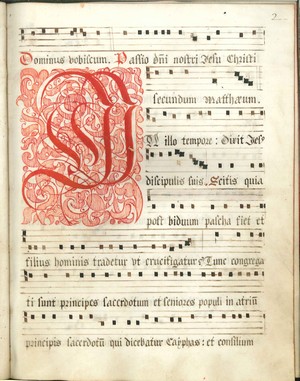 2
Dominus vobiscum. Passio dñi nostri Jesu Christi
secundum Matthæum.
IN illo tempore: Dixit Jesꝰ
discipulis suis. Scitis quia
post biduum pascha fiet et
filius hominis tradetur ut crucifigatur. Tunc congrega
ti sunt principes sacerdotum et seniores populi in atriũ
principis sacerdotũ qui dicebatur Cayphas: et consilium